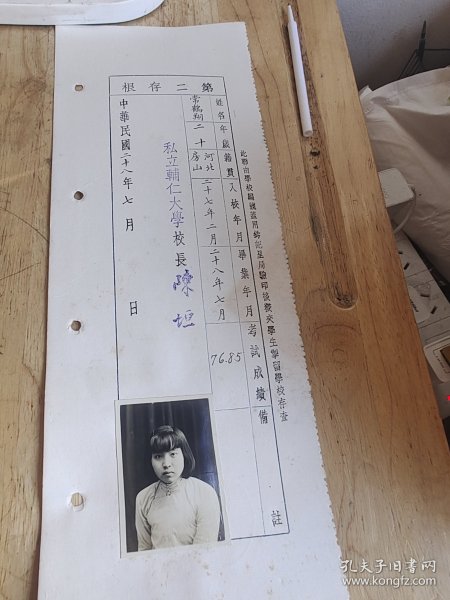 第二存根
此聯由學校編填蓋用鈐記呈局驗印後發交學生肄習學校存查
姓名 年歲 籍貫 入校年月 畢業年月 考試成績 備註
常鶴翔 二十 河北房山 二十七年二月 二十八年七月 76.85
私立輔仁大學校長陳垣
中華民國二十八年七月 日
孔夫子旧书网
www.kongfz.com